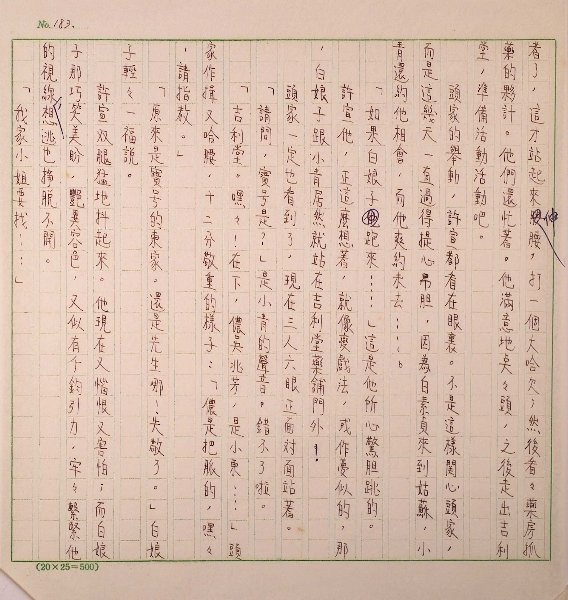 No. 183.
看了，這才站起來伸腰，打一個大哈欠；然後看々藥房抓
藥的夥計。他們還忙著。他滿意地點々頭，之後走出吉利
堂，準備活動活動吧。
頭家的舉動，許宣都看在眼裏。不是這樣關心頭家，
而是這幾天一直過得提心吊胆，因為白素貞來到姑蘇，小
青還約他相會，而他爽約未去……。
「如果白娘子跑來……」這是他所心驚胆跳的。
許宣他，正這麼想著，就像耍戲法，或作憂似的，那
，白娘子跟小青居然就站在吉利堂藥舖門外！
頭家一定也看到了，現在三人六眼正面对面站著。
「請問，寶号是？」是小青的聲音。錯不了啦。
「吉利堂。嘿々！在下，儂吳兆芳，是小東……」頭
家作揖又哈腰，十二分敬重的樣子：「儂是把脈的，嘿々
，請指教。」
「原來是寶号的東家。還是先生哪！失敬了。」白娘
子輕々一福說。
許宣双腿猛地抖起來。他現在又惱恨又害怕；而白娘
子那巧笑美盼，艷麗容色，又似有不鈎引力，牢々繫緊他
的視線，想逃也掙脫不開。
「我家小姐要找……」
(20×25=500)